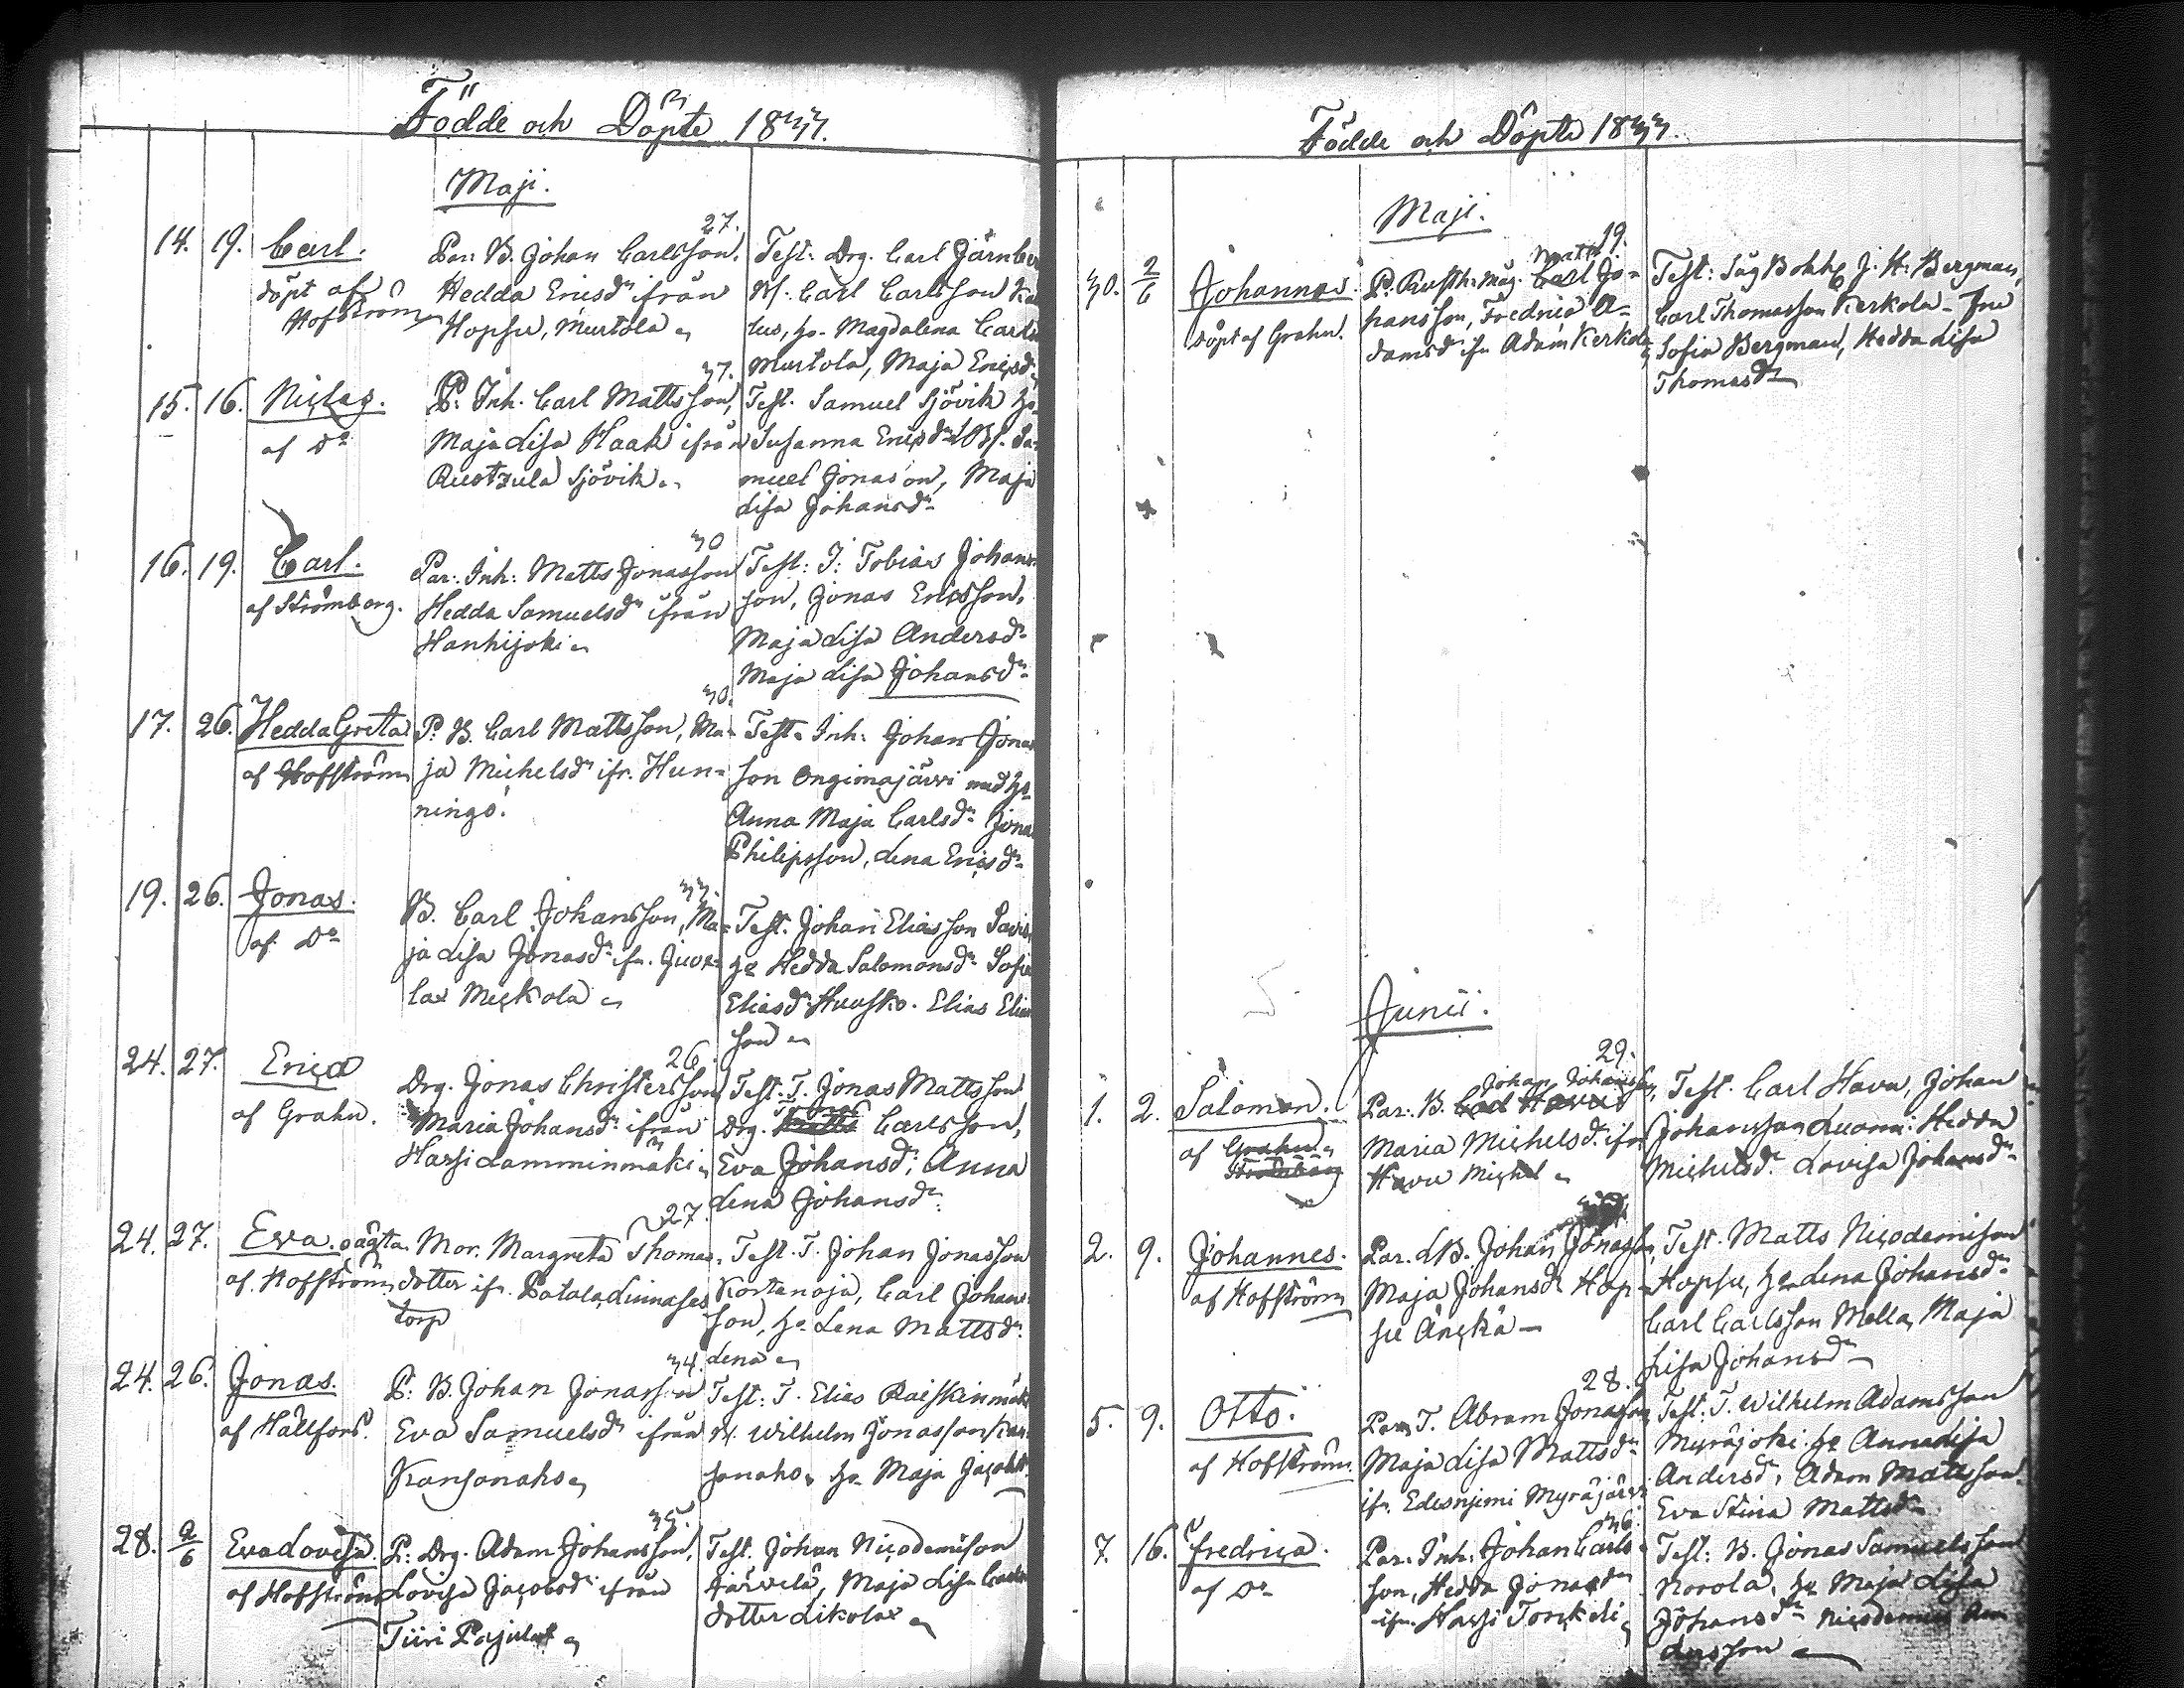 Födde och Döpte 1833.
Maji.
14. 19. Carl.
döpt af
Hofström
27.
Par: B. Johan Carlsson,
Hedda Ericsdr ifrån
Hopsu, Murtola
Test: Drg. Carl
Carl Carlsson
ho. Magdalena
Murtola, Maja Ericsdr
15. 16. Niclas.
af Do
37.
P: Inh. Carl Mattsson,
Maja Lisa Haak ifrån
Sjövik
Test. Samuel Sjövik ho
Susanna Ericsdr Sa-
muel Jonas'on, Maja
Lisa Johansdr
16. 19. Carl.
af Strömborg.
30
Par. Inh: Matts Jonasson
Hedda Samuelsdr ifrån
Hanhijoki
Test: J: Tobias Johans-
son, Jonas Ericsson,
Maja Lisa Andersdr
Maja Lisa Johansdr
17. 26. Hedda Greta
af Hofström
30.
P: B. Carl Mattsson, Ma-
ja Michelsdr ifr. Hun-
ningo.
Test. Inh. Johan Jonas
son Ongimajärvi med ho
Anna Maja Carlsdr Jonas
Philipsson, Lena Ericsdr
19. 26. Jonas.
af Do
33.
B. Carl Johansson, Ma-
ja Lisa Jonasdr ifr.
lax Mickola
Test. Johan Eliasson
ho Hedda Salomonsdr Sofia
Eliasdr Huusko. Elias Elias
son
24. 27. Erica
af Grahn.
26.
Drg. Jonas Christersson
Maria Johansdr ifrån
Harsi Lamminmäki
Test: T. Jonas Mattsson
Drg. Carlsson,
Eva Johansdr, Anna
Lena Johansdr.
24. 27. Eva. oägta.
af Hofström
27.
Mor. Margreta Thomas-
dotter ifr. Patala,
torp
Test. T. Johan Jonasson
Kortenoja, Carl Johans-
son, ho. Lena Mattsdr.
Lena
24. 26. Jonas.
af Hällfors.
34.
P: B. Johan Jonasson
Eva Samuelsdr ifrån
Kansonaho
Test: T. Elias Raiskinmäki
Wilhelm Jonasson Kan-
sonaho, ho. Maja Jacobsdr
28. 2/6 Eva Lovisa.
af Hofström
35.
P: Drg. Adam Johansson,
Lovisa Jacobsdr ifrån
Tiiri
Test. Johan Nicodemison
Järvelä, Maja Lisa Carls
dotter Likolax
Födde och Döpte 1833.
Maji.
30. 2/6 Johannes.
döpt af Grahn.
19.
Matts
P: Rusth. måg. Carl Jo-
hansson, Fredrica A-
damsdr ifr Adam Kerkola
Test: Såg Bokh. J. H. Bergman,
Carl Thomasson Kerkola. Fru
Sofia Bergman, Hedda Lisa
Thomasdr
Junii.
1. 2. Salomon.
af Grahn
29.
Johan Johansson,
Par. B. Carl Havu
Maria Michelsdr ifr
Havu Michel
Test. Carl Havu, Johan
Johansson Luoma. Hedda
Michelsdr. Lovisa Johansdr
2. 9. Johannes.
af Hofström
Par. LB. Johan Jonasson,
Maja Johansdr Hop-
su
Test. Matts Nicodemison
Hopsu, ho Lena Johansdr
Carl Carlsson Mella, Maja
Lisa Johansdr
5. 9. Otto.
af Hofström.
28.
Par. T. Abram Jonasson
Maja Lisa Mattsdr
ifr. Edesnjemi Myräjärvi
Test: T. Wilhelm Adamsson
Myräjoki. ho Anna Lisa
Andersdr, Adam Mattsson.
Eva Stina Mattsdr
7. 16. Fredrica.
af Do
36.
Par. Inh. Johan Carls-
son, Hedda Jonasdr
ifr. Harsi Torckeli
Test: B. Jonas Samuelsson
Norola, ho Maja Lisa
Johansdr Nicodemus An
dersson